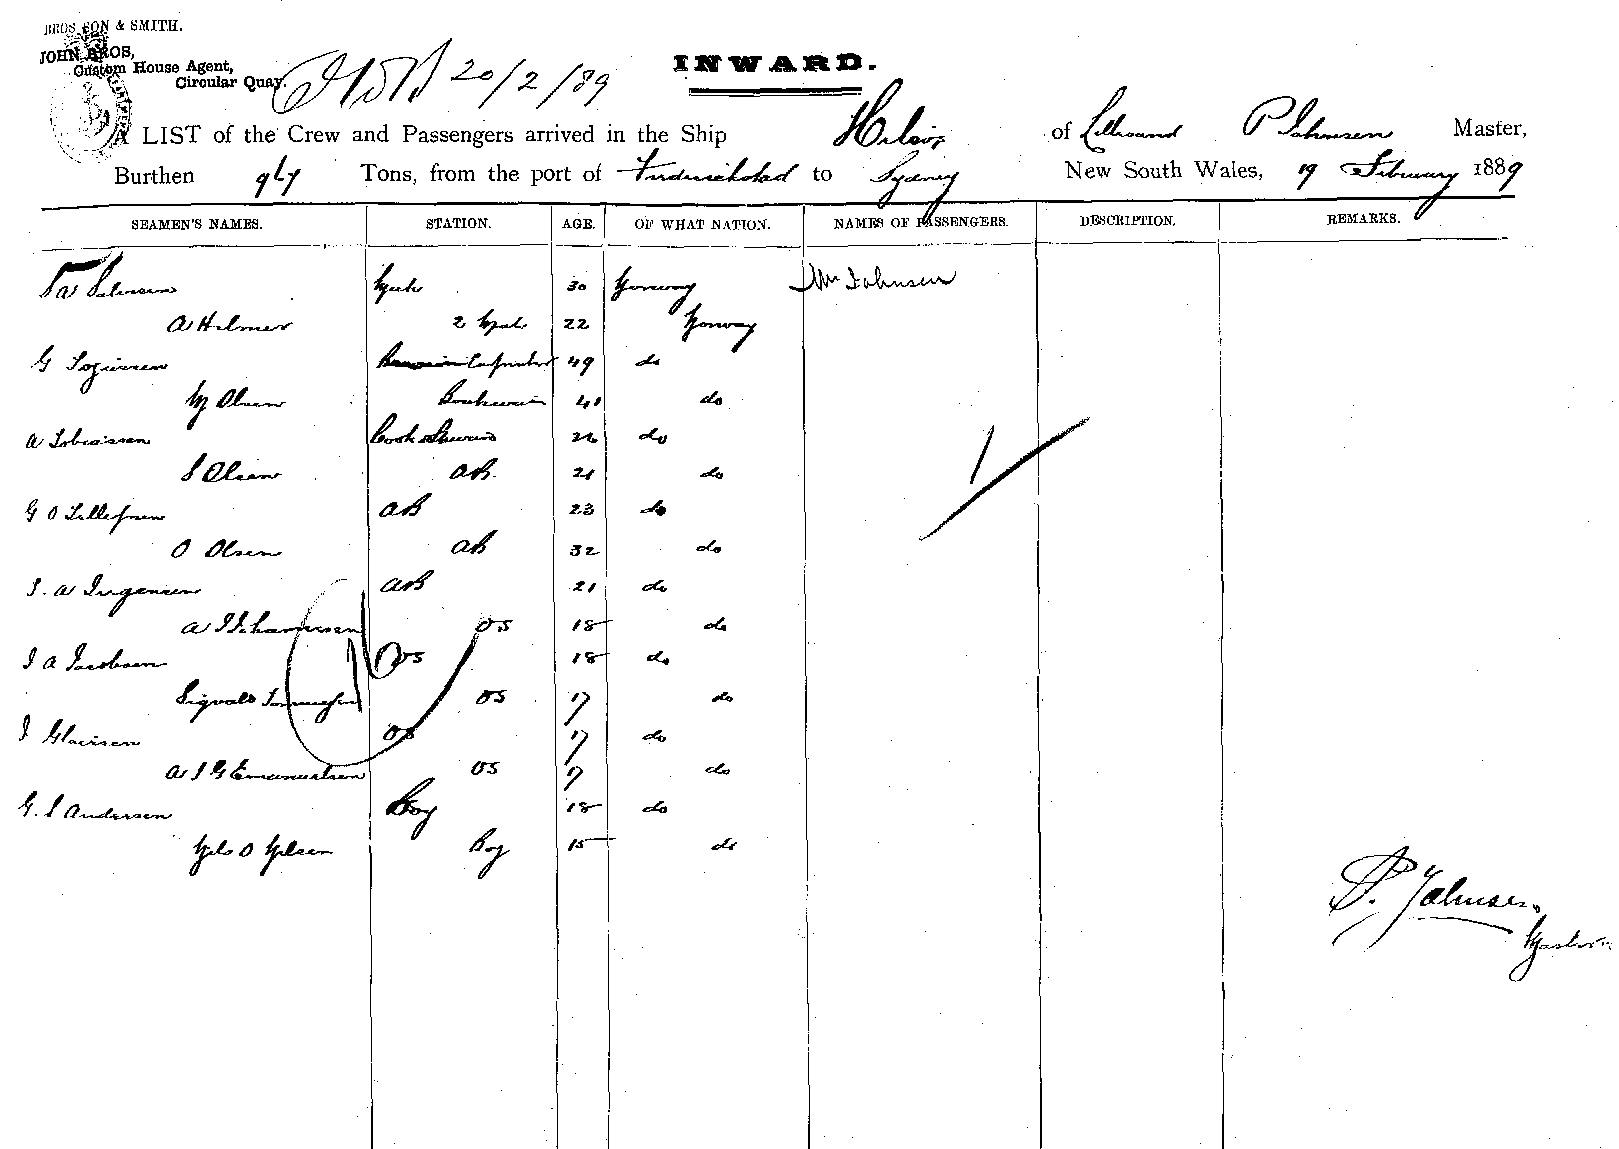 BROS, SON & SMITH.
JOHN BROS,
Custom House Agent,
Circular Quay.
20/2/89
INWARD.
A LIST of the Crew and Passengers arrived in the Ship of Lillesand P Johnsen Master,
Burthen Tons, from the port of Frederickstad to Sydney New South Wales, 19 February 1889
SEAMEN'S NAMES. STATION. AGE. OF WHAT NATION. NAMES OF PASSENGERS. DESCRIPTION. REMARKS.
Mate 30 Norway Mrs Johnsen
A Hilmer 2 Mate 22 Norway
G Carpenter 49 do
M Olsen Boatswain 41 do
A Tobiassen Cook & Steward do
S Olsen AB 21 do
G O AB 23 do
O Olsen AB 32 do
AB 21 do
A OS 18 do
J A Jacobsen OS 18 do
Sigvald OS 17 do
OS 17 do
A J G Emanuelsen OS 17 do
G. S Andersen Boy 18 do
Nils O Nilsen Boy 15 do
1
P. Johnsen
Master